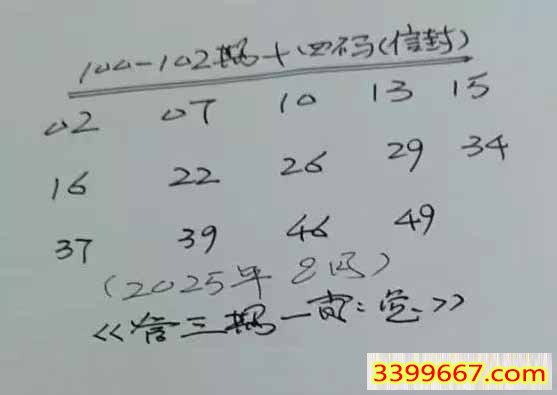 100-102期十四码(信封)
02 07 10 13 15
16 22 26 29 34
37 39 46 49
(2025年8码)
《《三期一肖:》》
3399667.com